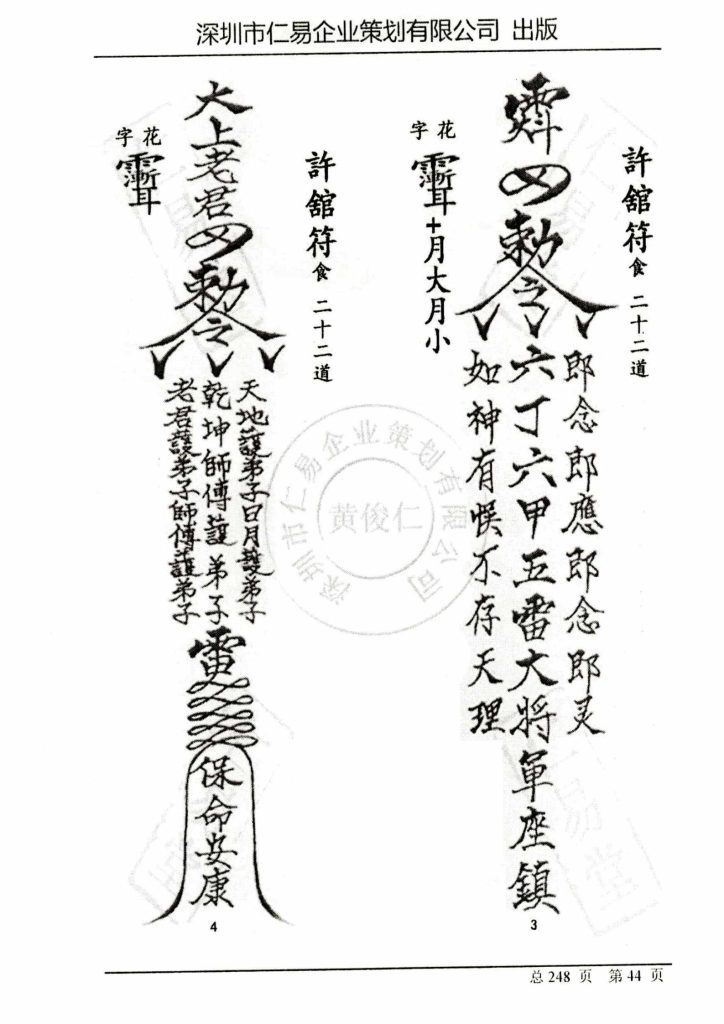 深圳市仁易企业策划有限公司 出版
許舘符食 二十二道
勅令
郎念郎應郎念郎灵
六丁六甲五雷大將軍座鎮
如神有悞不存天理
花字
十月大月小
3
許舘符食 二十二道
太上老君
勅令
天地護弟子日月護弟子
乾坤師傅護弟子
老君護弟子師傅護弟子
雷
保命安康
花字
4
深圳市仁易企业策划有限公司
黄俊仁
仁易堂
总 248 页 第 44 页